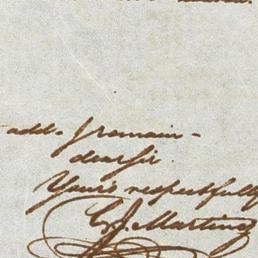 add. I remain -
dear sir
Yours respectfully
C. J. Martinez